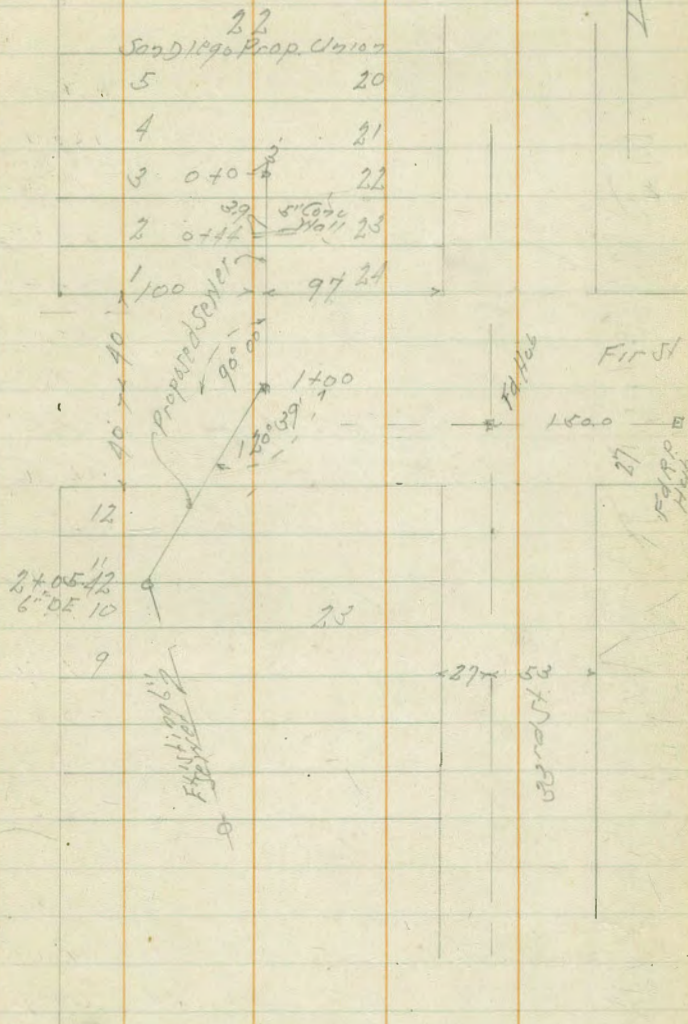 22
San Diego Prop. Union
5 20
4 21
3 0+0 3' 22
2 0+44 3.9 5" Conc Wall 23
1 100 97 24
40 40
Proposed Sewer
90° 00'
1+00
120° 39'
Fd Hub
First
150.0
27
Fd R.P. Hub
12
11
2+05.42
6" DE 10
23
9
27 53
Existing 6" Sewer
33rd St.